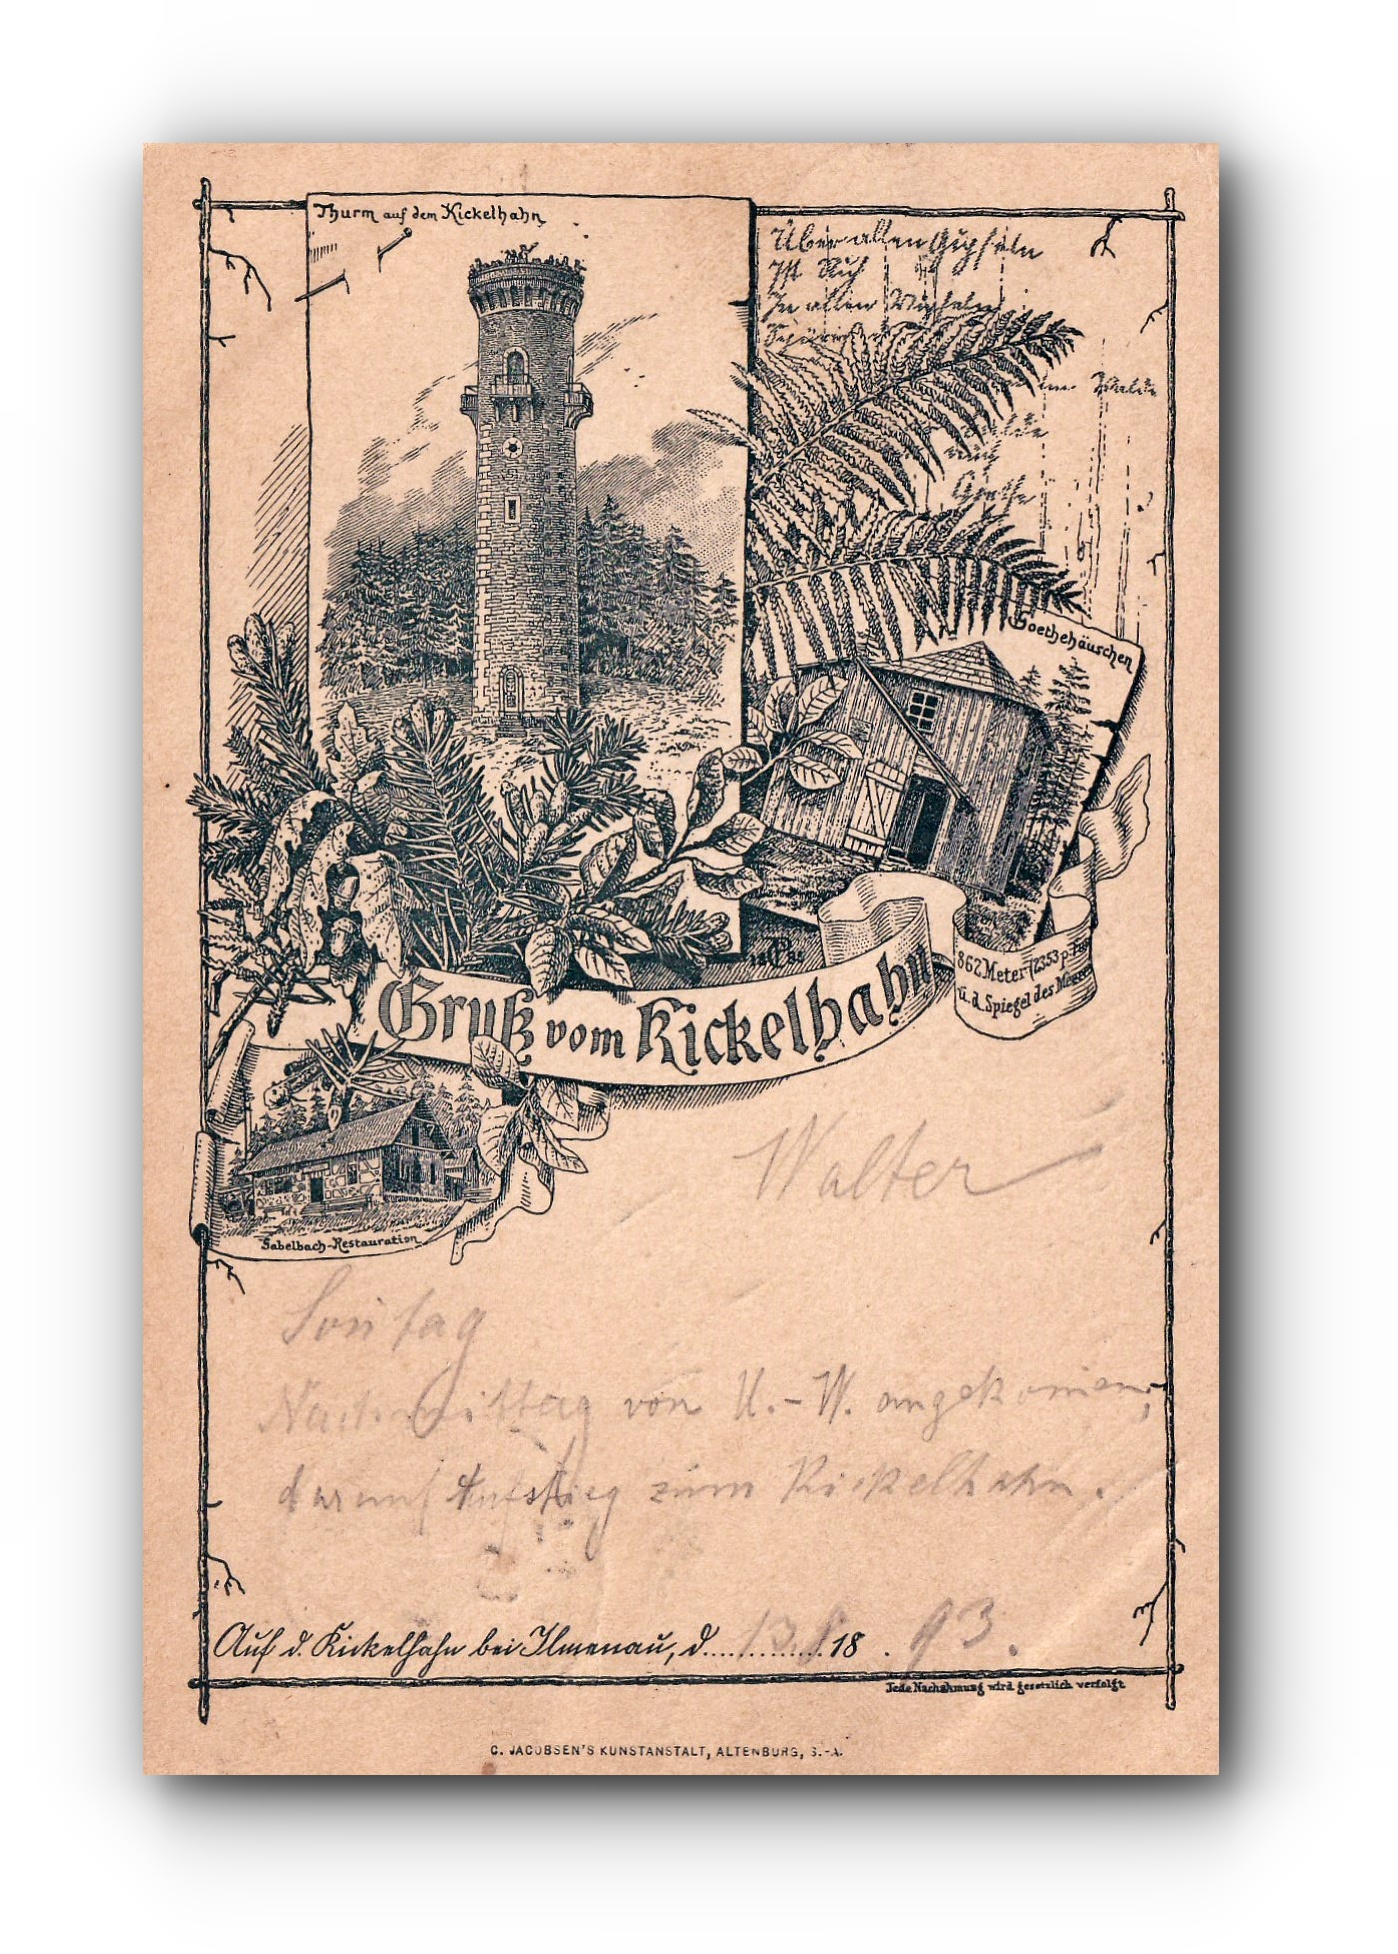 Thurm auf dem Kickelhahn
Über allen Gipfeln
Ist Ruh
In allen Wipfeln
Spüre
im Walde
Goethe
Goethehäuschen
862 Meter (2353 p. Fuss)
ü. d. Spiegel des Meeres
Gruß vom Kickelhahn
Gabelbach-Restauration
Walter
Sontag
Nachmittag von U.-W. angekommen,
darauf Aufstieg zum Kickelhahn.
Auf d. Kickelhahn bei Ilmenau, d. 13.8. 18 . 93.
Jede Nachahmung wird gesetzlich verfolgt
C. JACOBSEN'S KUNSTANSTALT, ALTENBURG, S.-A.